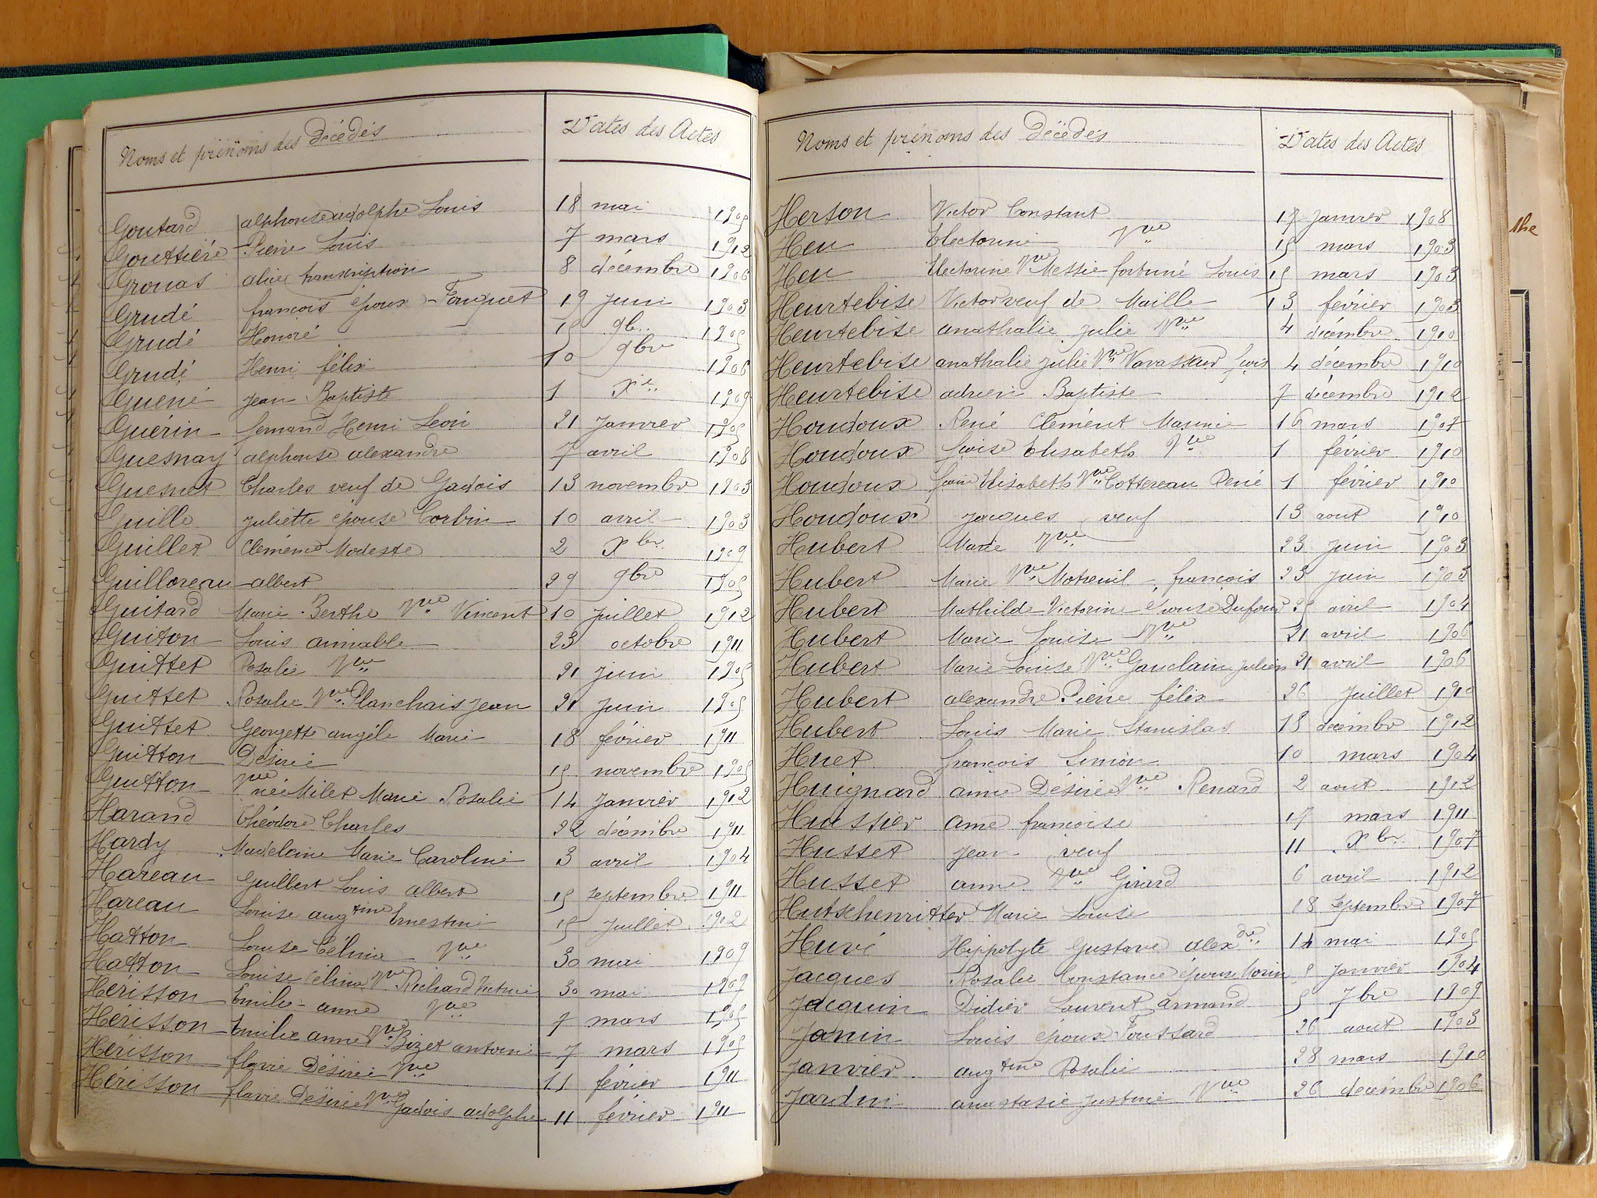 Noms et prénoms des Décédés Dates des Actes
Goutard alphonse adolphe Louis 18 mai 1905
Gouttière Pierre Louis 7 mars 1912
Grouas alice transcription 8 décembre 1906
Grudé françois époux Fouquet 19 Juin 1903
Grudé Honoré 15 9b.. 1905
Grudé Henri félix 10 9bre 1906
Guéné Jean Baptiste 1 Xre 1909
Guérin fernand Henri Léon 21 Janvier 1905
Guesnay alphonse alexandre 7 avril 1908
Guesnet Charles veuf de Gadois 13 novembre 1903
Guille Juliette épouse Corbin 10 avril 1903
Guillet Clémence Modeste 2 Xbre 1909
Guilloreau albert 29 9bre 1905
Guitard Marie Berthe Vve Vincent 10 Juillet 1912
Guiton Louis aimable 23 octobre 1911
Guittet Rosalie Vve 21 Juin 1905
Guittet Rosalie Vve Planchais Jean 21 Juin 1905
Guittet Georgette angèle Marie 18 février 1911
Guitton Désiré 15 novembre 1905
Guitton Vve née Milet Marie Rosalie 14 Janvier 1912
Harand Théodore Charles 22 décembre 1911
Hardy Madeleine Marie Caroline 3 avril 1904
Hareau Guillert Louis albert 15 septembre 1911
Hareau Louise augtine Ernestine 15 Juillet 1912
Hatton Louise Célina Vve 30 mai 1909
Hatton Louise Célina Vve Richard 30 mai 1909
Hérisson Emilie anne Vve 7 mars 1905
Hérisson Emilie anne Vve Bizet antoine 7 mars 1905
Hérisson flavie Désirée Vve 11 février 1911
Hérisson flavie Désirée Vve Gadois adolphe 11 février 1911
Noms et prénoms des Décédés Dates des Actes
Herson Victor Constant 17 Janvier 1908
Heu Vve 15 mars 1903
Heu Vve Messie fortuné Louis 15 mars 1903
Heurtebise Victor veuf de Maille 13 février 1903
Heurtebise anathalie Julie Vve 4 décembre 1910
Heurtebise anathalie Julie Vve Vavasseur 4 décembre 1910
Heurtebise adrien Baptiste 7 décembre 1912
Houdoux René Clément 16 mars 1907
Houdoux Elisabeth Vve 1 février 1910
Houdoux Elisabeth Vve Cottereau René 1 février 1910
Houdoux Jacques veuf 13 aout 1910
Hubert Marie Vve 23 Juin 1903
Hubert Marie Vve Motreuil françois 23 Juin 1903
Hubert Mathilde Victorine épouse Dufour 25 avril 1904
Hubert Marie Louise Vve 21 avril 1906
Hubert Marie Louise Vve Gauclain Julien 21 avril 1906
Hubert alexandre Pierre félix 26 Juillet 1910
Hubert Louis Marie Stanislas 13 décembre 1912
Huet françois Simon 10 mars 1904
Huignard anne Désirée Vve Renard 2 aout 1912
Huissier anne françoise 17 mars 1911
Husset Jean veuf 11 Xbre 1907
Husset anne Vve Girard 6 avril 1912
Hutschenritter Marie Louise 18 Septembre 1907
Huvé Hippolyte Gustave alexdre 14 mai 1905
Jacques Rosalie Constance épouse Morin 8 Janvier 1904
Jacquin Didier Laurent armand 5 7bre 1909
Janin Louis époux Toussard 26 aout 1903
Janvier augtine Rosalie 28 mars 1910
Jardin anastasie Justine Vve 26 décembre 1906
the